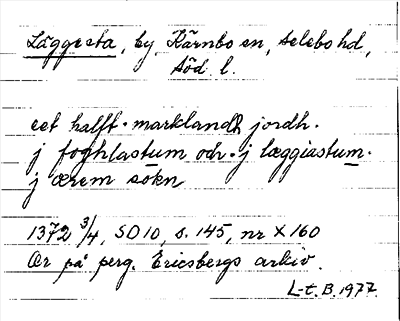 Läggesta, by, Kärnbo sn, Selebo hd,
Söd. l.
eet halft. marklandh jordh.
j foghlastum och. j læggiastum.
j ærem sokn
1372 3/4, SD10, s. 145, nr X160
Or på perg. Ericsbergs arkiv.
L-t. B. 1977.